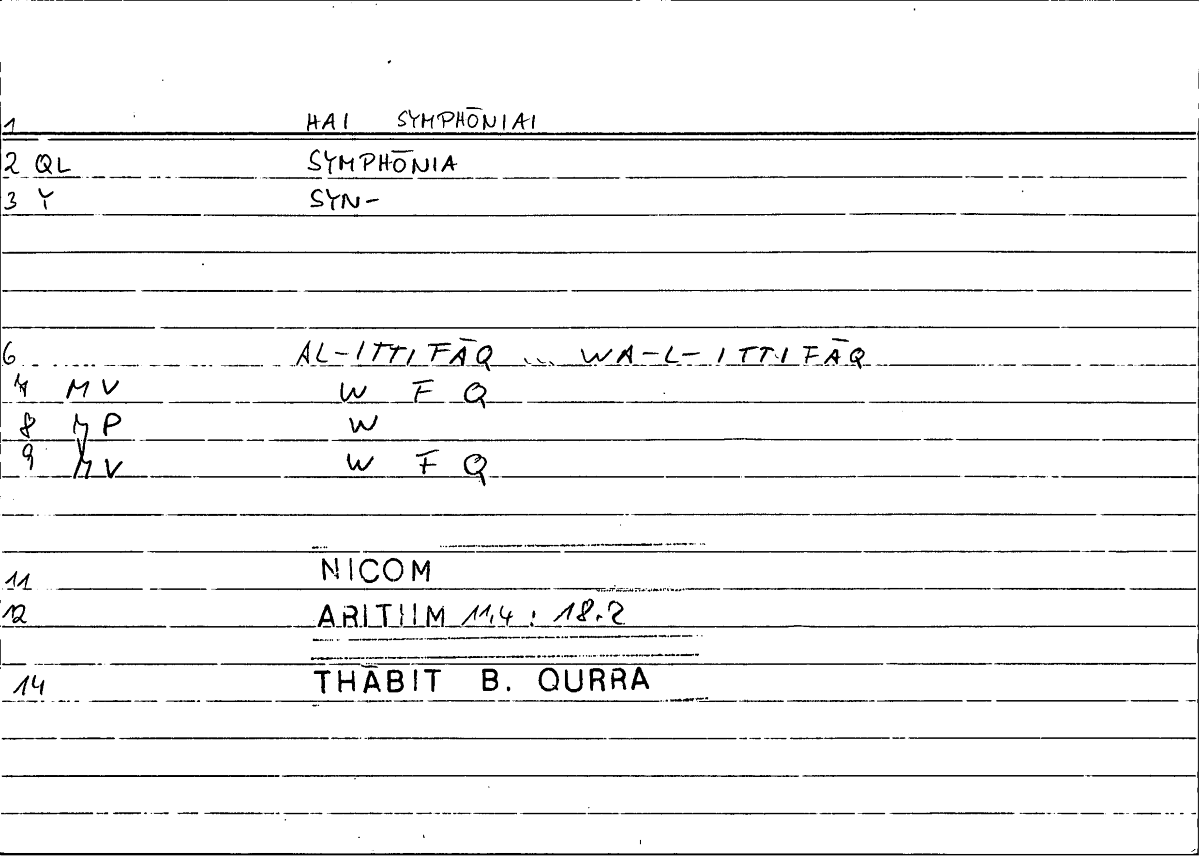 1 HAI SYMPHŌNIAI
2 QL SYMPHŌNIA
3 Y SYN-
6 AL-ITTIFĀQ ... WA-L-ITTIFĀQ
7 MV W F Q
8 MP W
9 MV W F Q
11 NICOM
12 ARITHM 11,4 : 18.2
14 THĀBIT B. QURRA